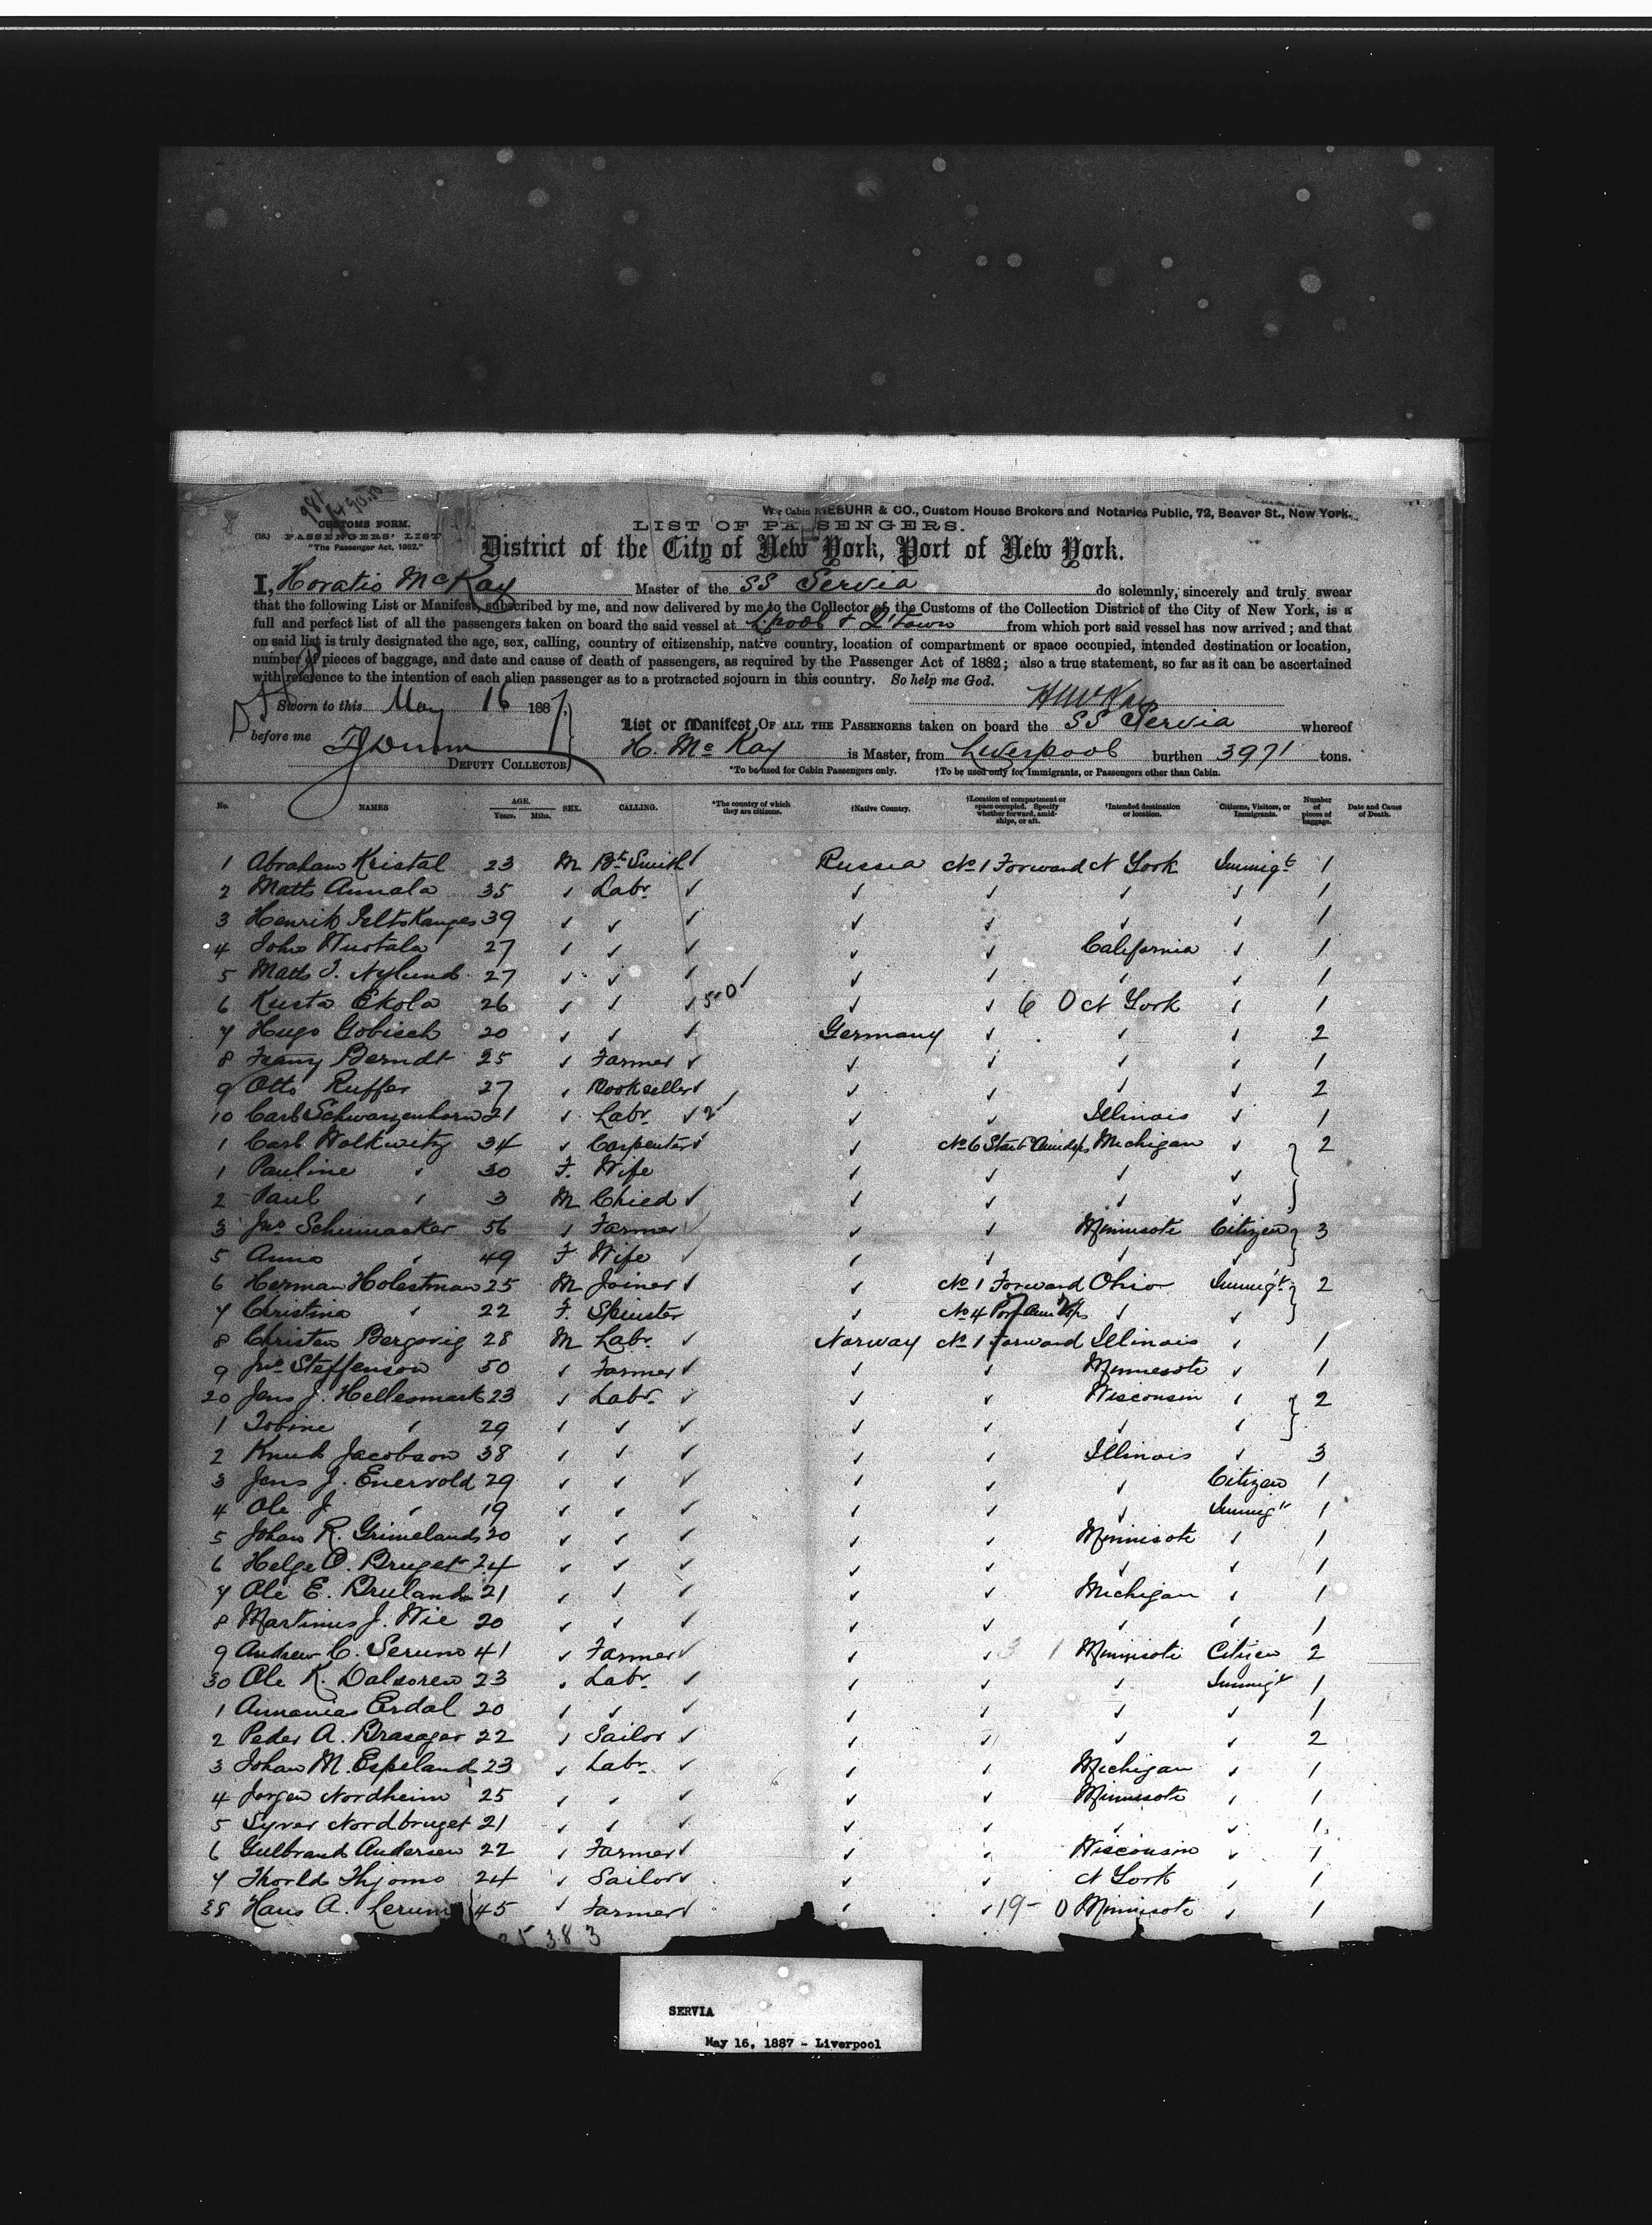 CUSTOMS FORM.
PASSENGERS' LIST
"The Passenger Act, 1882."
EBUHR & CO., Custom House Brokers and Notaries Public, 72, Beaver St., New York.
LIST OF PASSENGERS.
District of the City of New York, Port of New York.
I, Horatio McKay Master of the SS Servia do solemnly, sincerely and truly swear
that the following List or Manifest, subscribed by me, and now delivered by me to the Collector of the Customs of the Collection District of the City of New York, is a
full and perfect list of all the passengers taken on board the said vessel at L'pool & Q'Town from which port said vessel has now arrived; and that
on said list is truly designated the age, sex, calling, country of citizenship, native country, location of compartment or space occupied, intended destination or location,
number of pieces of baggage, and date and cause of death of passengers, as required by the Passenger Act of 1882; also a true statement, so far as it can be ascertained
with reference to the intention of each alien passenger as to a protracted sojourn in this country. So help me God.
Sworn to this May 16 1887
before me
DEPUTY COLLECTOR
List or Manifest, OF ALL THE PASSENGERS taken on board the SS Servia whereof
H. McKay is Master, from Liverpool burthen 3971 tons.
*To be used for Cabin Passengers only. †To be used only for Immigrants, or Passengers other than Cabin.
No. NAMES AGE. Years. Mths. SEX. CALLING. *The country of which they are citizens. †Native Country. †Location of compartment or space occupied. Specify whether forward, amidships, or aft. †Intended destination or location. Citizens, Visitors, or Immigrants. Number of pieces of baggage. Date and Cause of Death.
1 Abraham Kristal 23 M Bk Smith Russia No 1 Forward N York Immigt 1
2 Matts Annala 35 Labr 1
3 Henrik 39 1
4 John 27 California 1
5 Matts J. Nylund 27 1
6 Kusta Ekola 26 50 6 0 N York 1
7 Hugo Gobisch 20 Germany 2
8 Franz Berndt 25 Farmer 1
9 Otto Ruffer 27 Bookseller 2
10 Carl Schwarzenhorn 21 Labr 2 Illinois 1
1 Carl Wolkwitz 34 Carpenter No 6 Starb Amidsps Michigan 2
1 Pauline 30 F. Wife
2 Paul 3 M Child
3 Jno Schumacker 56 Farmer Minnisote Citizen 3
5 Anna 49 F. Wife
6 Herman Holestman 25 M Joiner No 1 Forward Ohio Immigt 2
7 Christina 22 F. Spinster No 4 Port Amidsps
8 Christen Bergsvig 28 M Labr Norway No 1 Forward Illinois 1
9 Jno Steffenson 50 Farmer Minnesote 1
20 Jens J. Hellesmark 23 Labr Wisconsin 2
1 Tobine 29
2 Knut Jacobson 38 Illinois 3
3 Jens J. Enervold 29 Citizen 1
4 Ole J. 19 Immigt 1
5 Johan R. Grimelands 20 Minnisote 1
6 Helge O. Bruget 24 1
7 Ole E. Bruland 21 Michigan 1
8 Martinus J. Wie 20 1
9 Andrew C. Serum 41 Farmer 3 1 Minnisote Citizen 2
30 Ole K. Dalsoren 23 Labr Immigt 1
1 Annanias Erdal 20 1
2 Peder A. Brasager 22 Sailor 2
3 Johan M. Espeland 23 Labr Michigan 1
4 Jorgen Nordheim 25 Minnisote 1
5 Syver Nordbruget 21 1
6 Gulbrand Andersen 22 Farmer Wisconsin 1
7 Thorld Thjomo 24 Sailor N York 1
38 Hans A. Lerum 45 Farmer 19- 0 Minnisote 1
383
SERVIA
May 16, 1887 - Liverpool